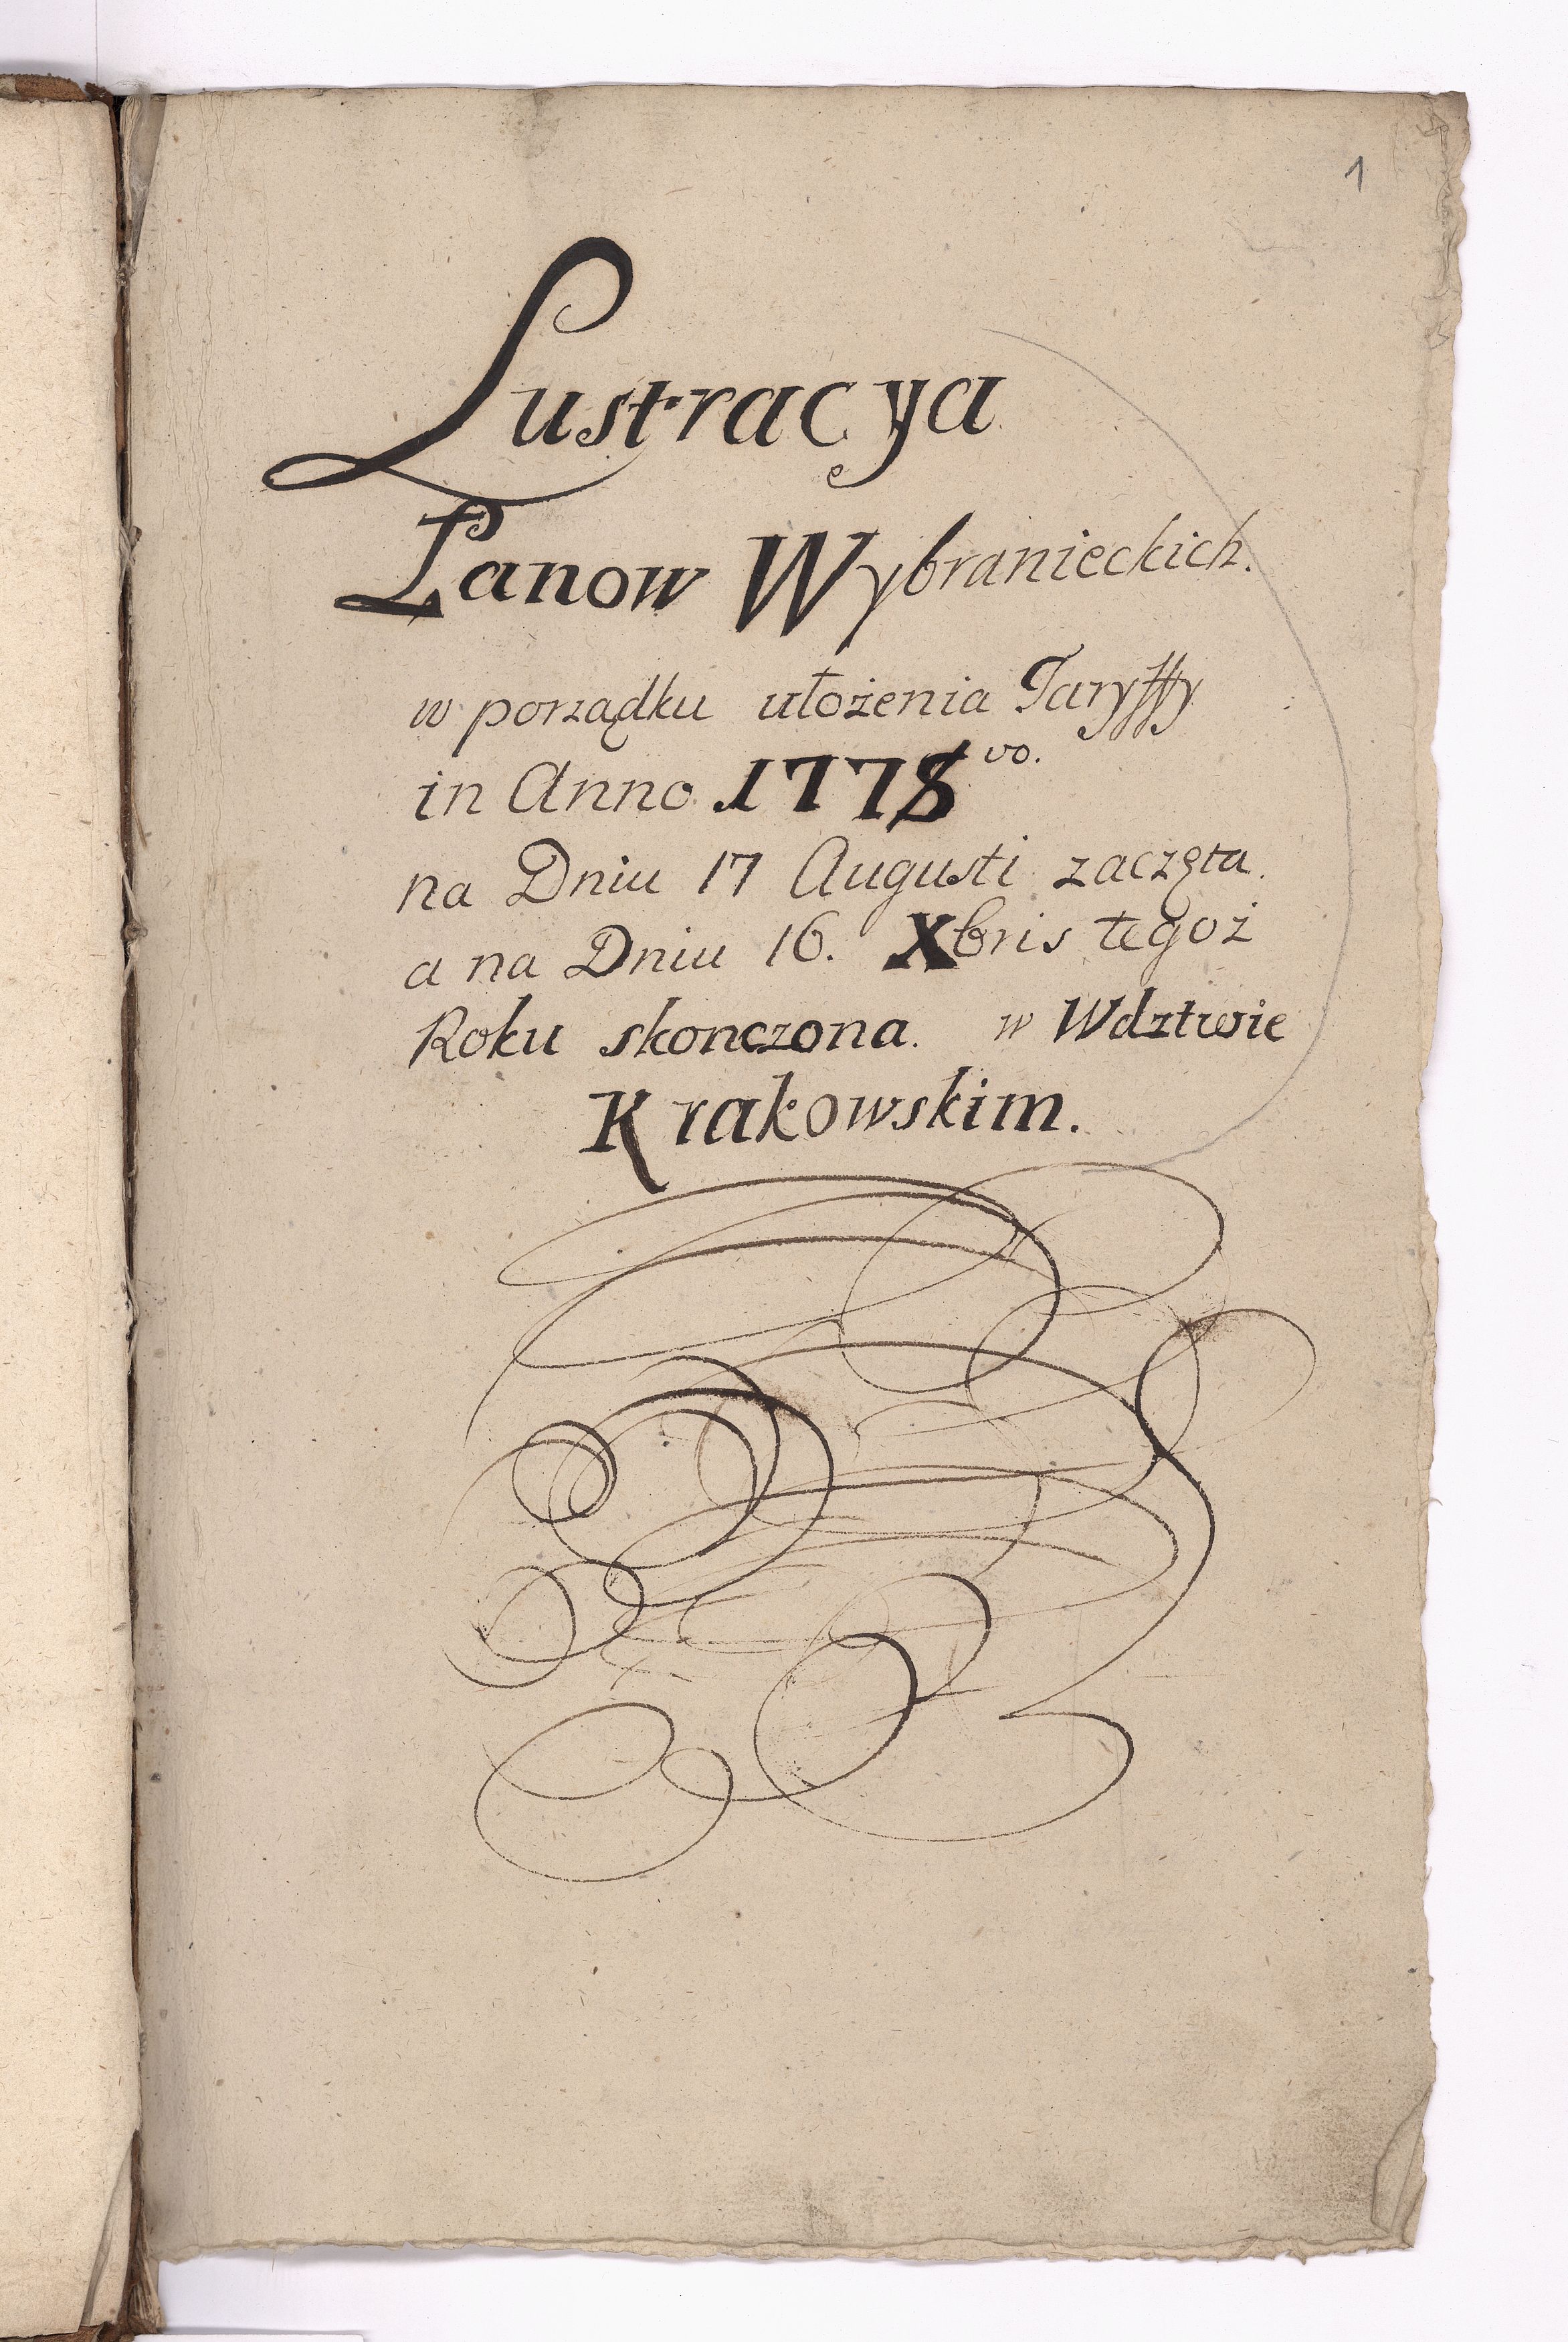 1
Lustracya
Łanow Wybranieckich.
w porządku ułożenia Taryffy
in Anno 1778vo.
na Dniu 17 Augusti zaczęta.
a na Dniu 16. Xbris tegoż
Roku skonczona. w Wdztwie
Krakowskim.